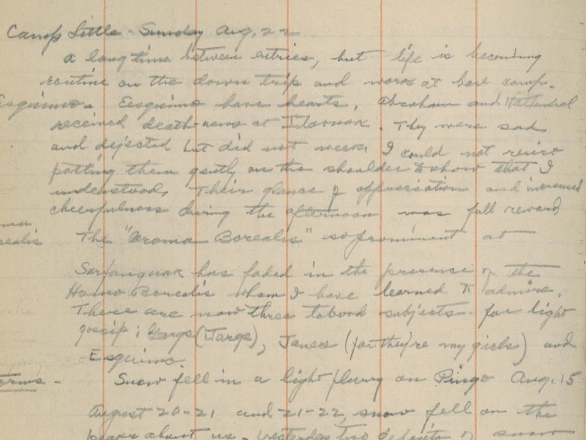 Camp Little - Sunday Aug. 22
A long time between entries, but life is becoming
routine on the down trip and work at base camp.
Esquimo - Esquimo have hearts. Abraham and
received death news at . They were sad
and dejected but did not weep. I could not resist
patting them gently on the shoulder to show that I
understood. Their glance of appreciation and increased
cheerfulness during the afternoon was full reward
Borealis The "Aroma Borealis" so prominent at
has faded in the presence of the
Homo Borealis whom I have learned to admire.
There are now three tabood subjects for light
gossip: George (Jarge), Janes (for they're my girls) and
Esquimo.
Snow fell in a light flurry on Pingo Aug. 15
August 20-21 and 21-22, snow fell on the
about us - yesterday two of snow